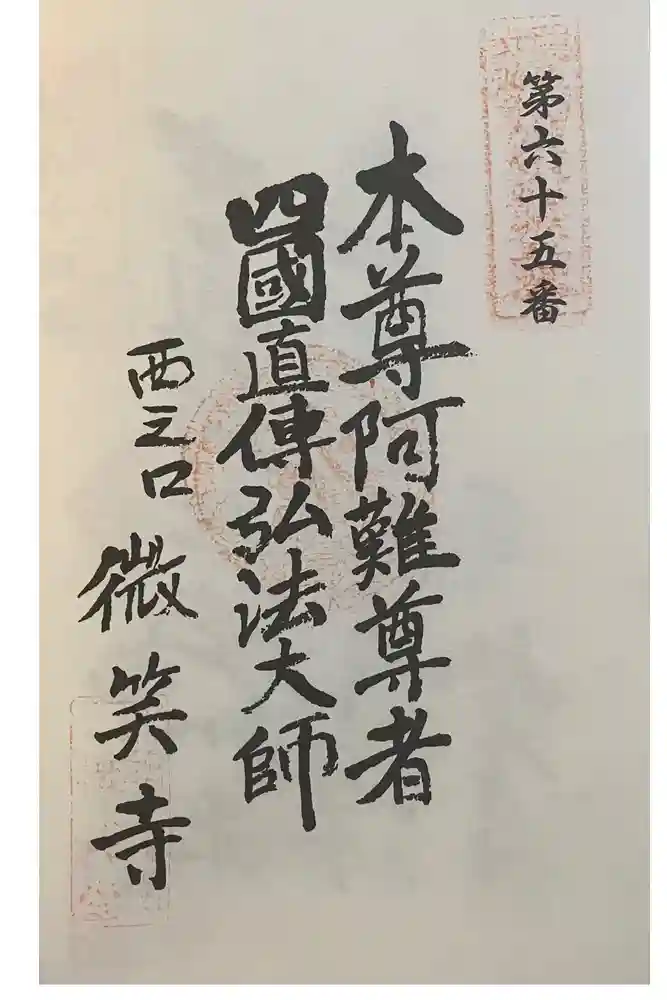 第六十五番
本尊阿難尊者
四國直傳弘法大師
西之口 微笑寺